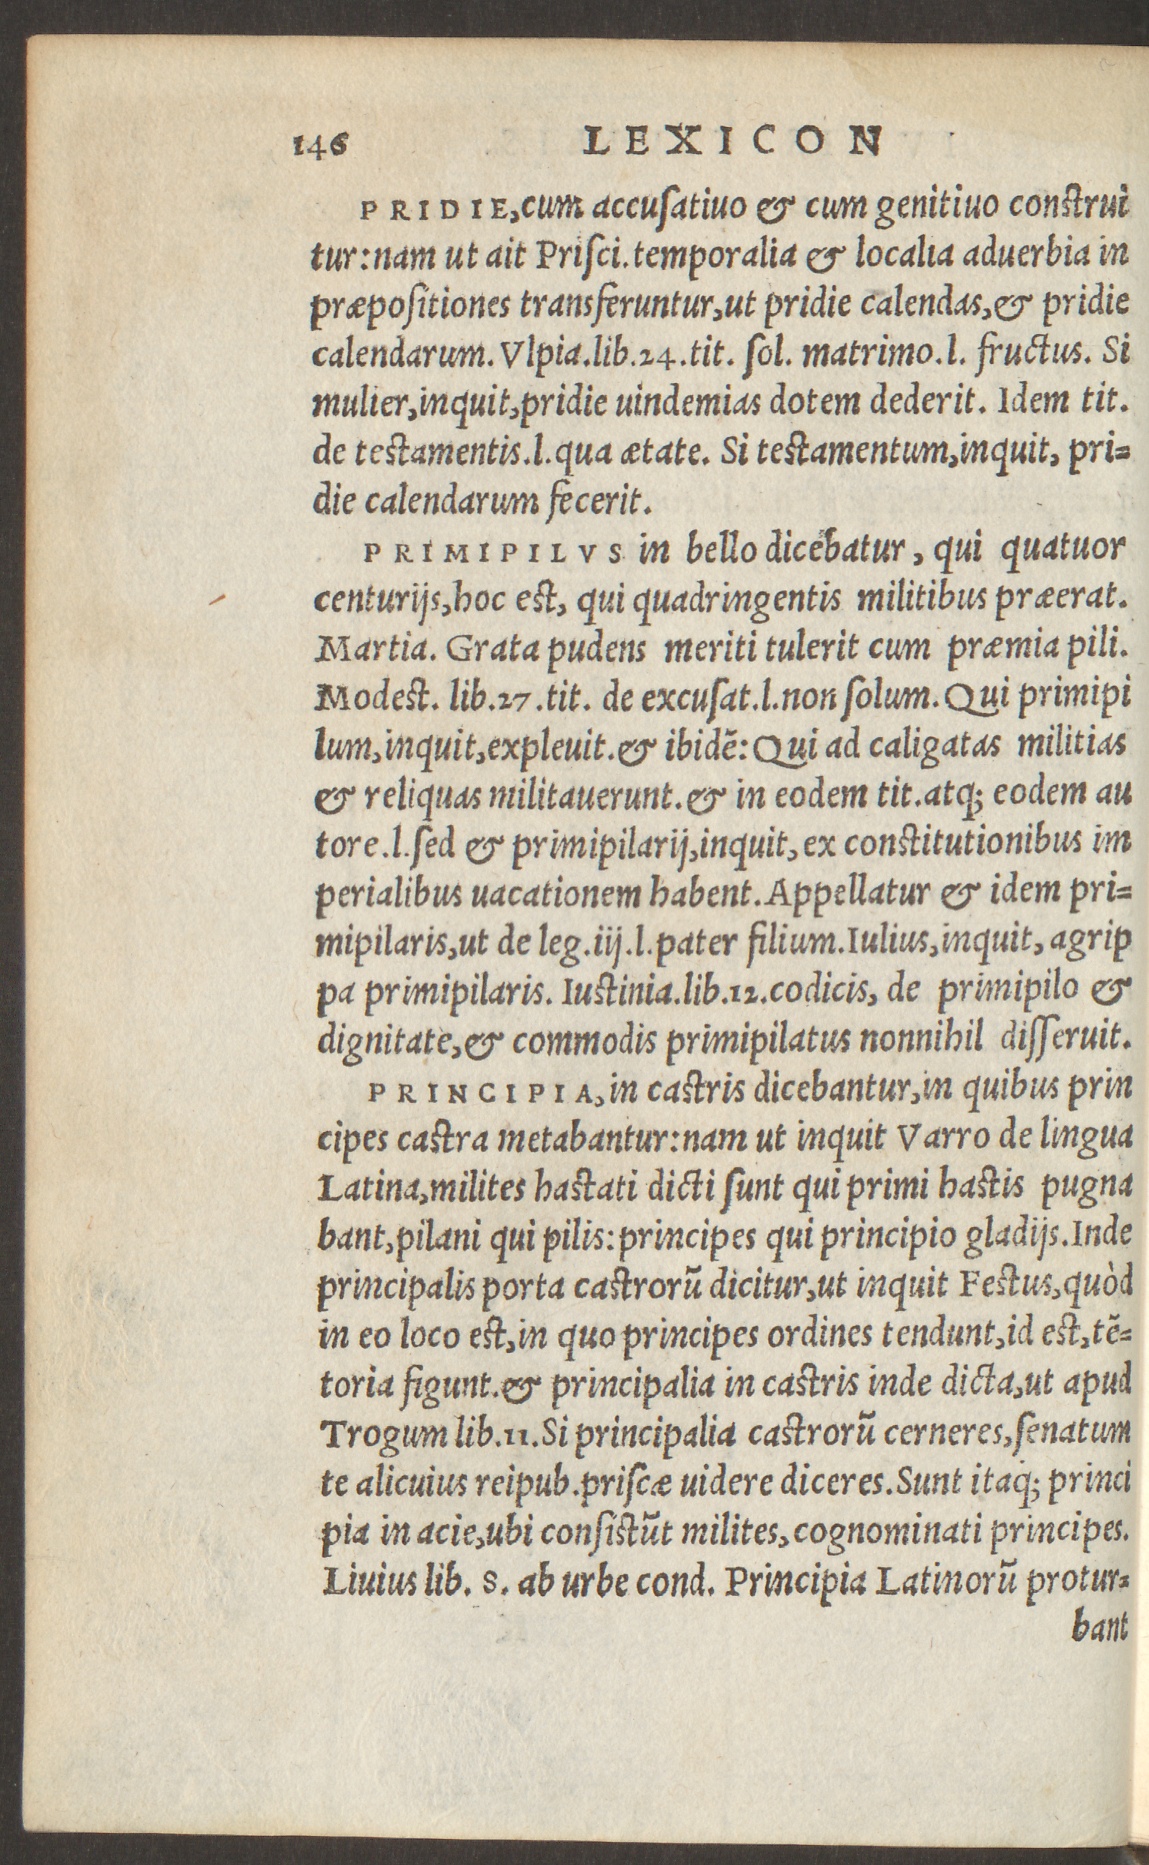 146 LEXICON
PRIDIE, cum accuſatiuo & cum genitiuo construi
tur: nam ut ait Priſci. temporalia & localia aduerbia in
præpoſitiones transferuntur, ut pridie calendas, & pridie
calendarum. Vlpia. lib. 24. tit. ſol. matrimo. l. fructus. Si
mulier, inquit, pridie uindemias dotem dederit. Idem tit.
de testamentis. l. qua ætate. Si testamentum, inquit, pri=
die calendarum fecerit.
PRIMIPILVS in bello dicebatur, qui quatuor
centurijs, hoc est, qui quadringentis militibus præerat.
Martia. Grata pudens meriti tulerit cum præmia pili.
Modest. lib. 27. tit. de excuſat. l. non ſolum. Qui primipi
lum, inquit, expleuit. & ibidẽ: Qui ad caligatas militias
& reliquas militauerunt. & in eodem tit. atq; eodem au
tore. l. ſed & primipilarij, inquit, ex constitutionibus im
perialibus uacationem habent. Appellatur & idem pri=
mipilaris, ut de leg. iij. l. pater filium. Iulius, inquit, agrip
pa primipilaris. Iustinia. lib. 12. codicis, de primipilo &
dignitate, & commodis primipilatus nonnihil diſſeruit.
PRINCIPIA, in castris dicebantur, in quibus prin
cipes castra metabantur: nam ut inquit Varro de lingua
Latina, milites hastati dicti ſunt qui primi hastis pugna
bant, pilani qui pilis: principes qui principio gladijs. Inde
principalis porta castrorũ dicitur, ut inquit Festus, quòd
in eo loco est, in quo principes ordines tendunt, id est, tẽ=
toria figunt. & principalia in castris inde dicta, ut apud
Trogum lib. 11. Si principalia castrorũ cerneres, ſenatum
te alicuius reipub. priſcæ uidere diceres. Sunt itaq; princi
pia in acie, ubi conſistũt milites, cognominati principes.
Liuius lib. 8. ab urbe cond. Principia Latinorũ protur=
bant